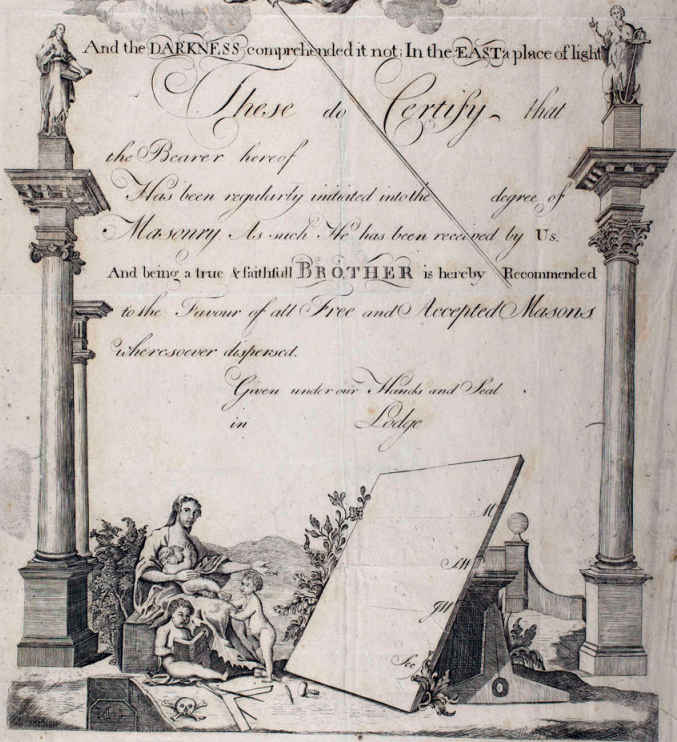 And the DARKNESS comprehended it not; In the EAST a place of light
These do Certify that
the Bearer hereof
Has been regularly initiated into the degree of
Masonry. As such He has been received by Us.
And being a true & faithfull BROTHER is hereby Recommended
to the Favour of all Free and Accepted Masons
wheresoever dispersed.
Given under our Hands and Seal
in Lodge
M
SW
JW
Sec